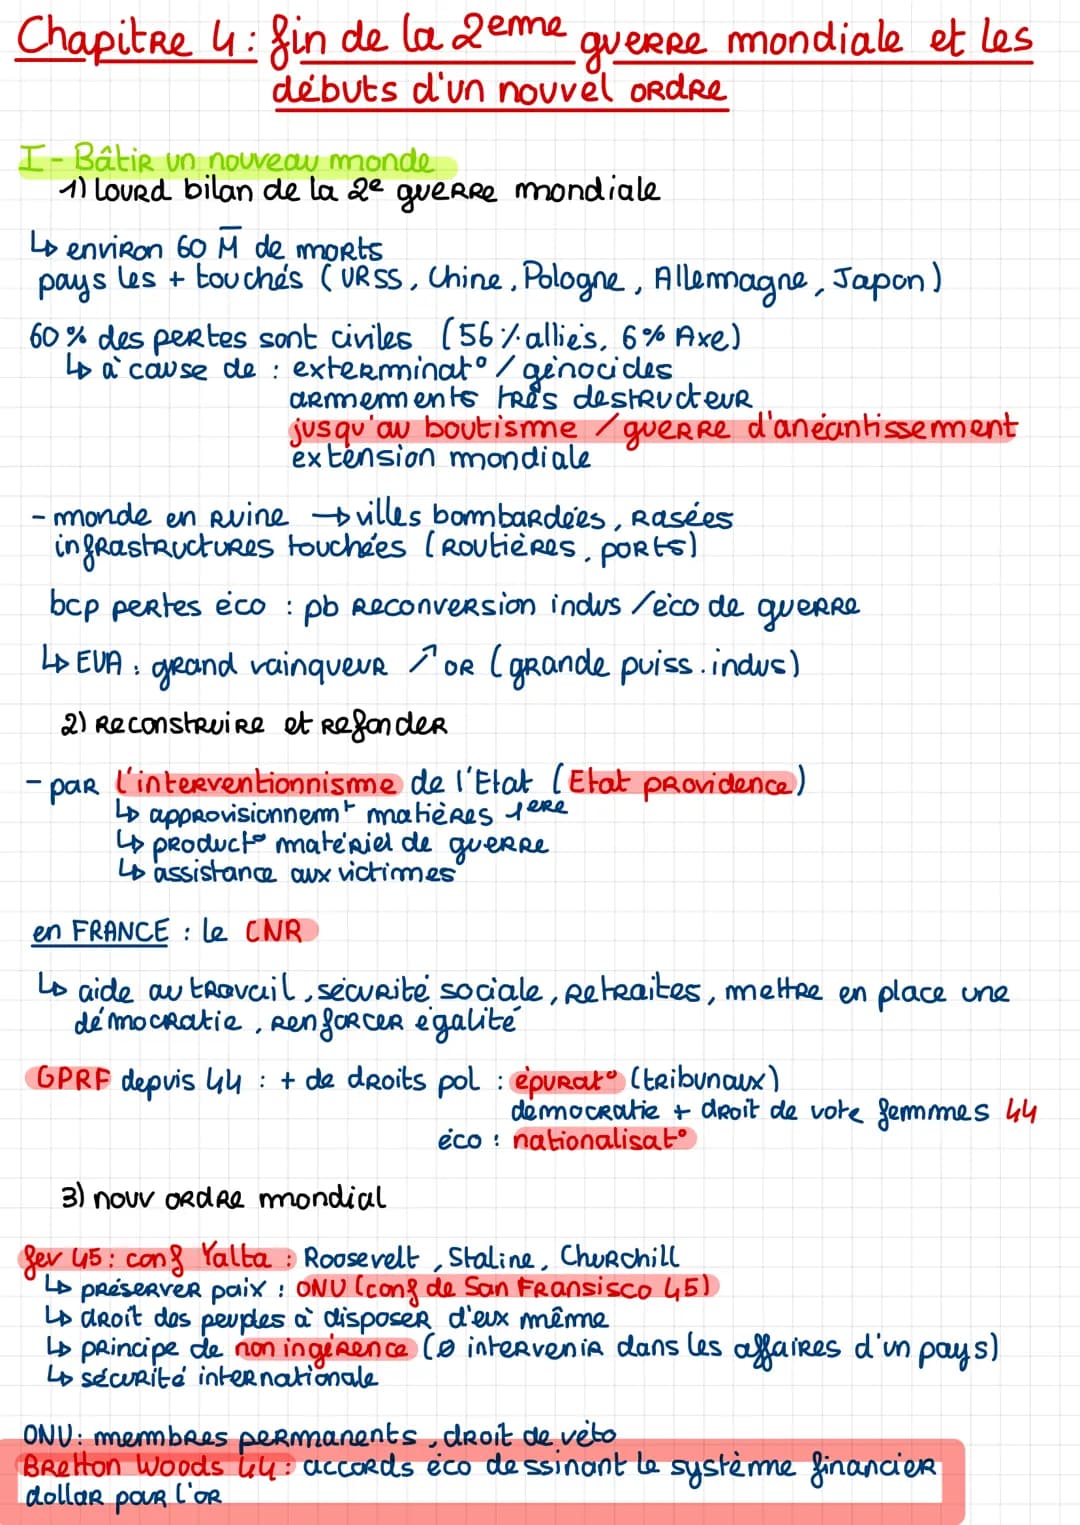 Chapitre 4 : fin de la 2eme guerre mondiale et les
débuts d'un nouvel ordre
I - Bâtir un nouveau monde
1) lourd bilan de la 2e guerre mondiale
↳ environ 60 M̅ de morts
pays les + touchés (URSS, Chine, Pologne, Allemagne, Japon)
60 % des pertes sont civiles (56 % alliés, 6% Axe)
↳ à cause de : exterminat° / génocides
armements très destructeur
jusqu'au boutisme / guerre d'anéantissement
extension mondiale
- monde en ruine → villes bombardées, rasées
infrastructures touchées (routières, ports)
bcp pertes éco : pb reconversion indus / éco de guerre
↳ EUA : grand vainqueur ↗ or (grande puiss. indus)
2) reconstruire et refonder
- par l'interventionnisme de l'Etat (Etat providence)
↳ approvisionnemt matières 1ere
↳ product° matériel de guerre
↳ assistance aux victimes
en FRANCE : le CNR
↳ aide au travail, sécurité sociale, retraites, mettre en place une
démocratie, renforcer égalité
GPRF depuis 44 : + de droits pol : épurat° (tribunaux)
democratie + droit de vote femmes 44
éco : nationalisat°
3) nouv ordre mondial
fev 45 : conf Yalta : Roosevelt, Staline, Churchill
↳ préserver paix : ONU (conf de San Fransisco 45)
↳ droit des peuples à disposer d'eux même
↳ principe de non ingérence (Ø intervenir dans les affaires d'un pays)
↳ sécurité internationale
ONU : membres permanents, droit de véto
Bretton Woods 44 : accords éco dessinant le système financier
dollar pour l'or